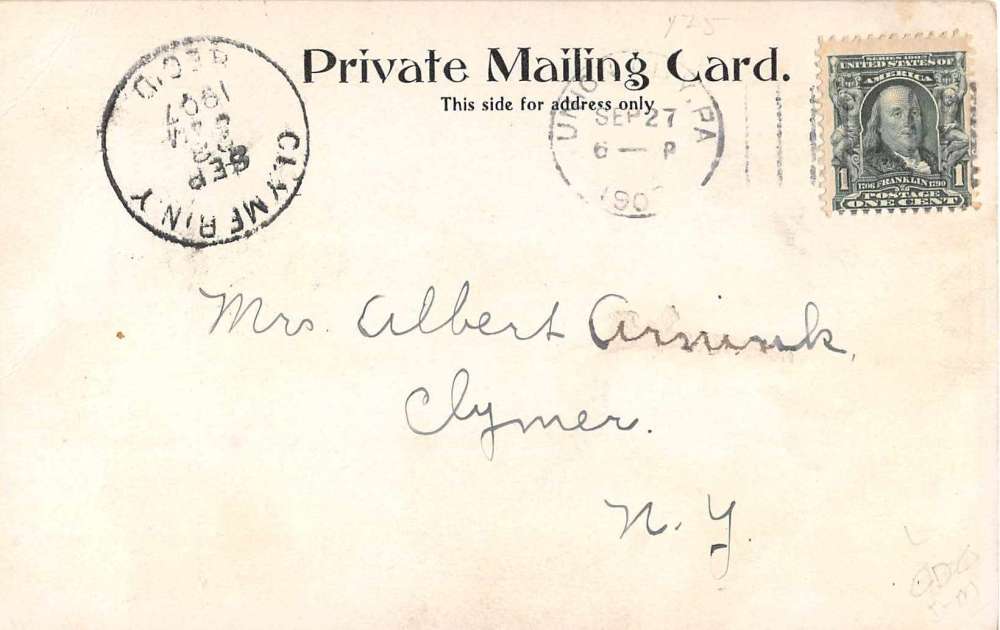 Private Mailing Card.
This side for address only
REC'D.
1907
SEP
CLYMER N.Y.
PA
SEP 27
6 — P
190
SERIES 1902
UNITED STATES OF
AMERICA
1706 FRANKLIN 1790
1 1
POSTAGE
ONE CENT
Mrs. Albert
Clymer.
N. Y.